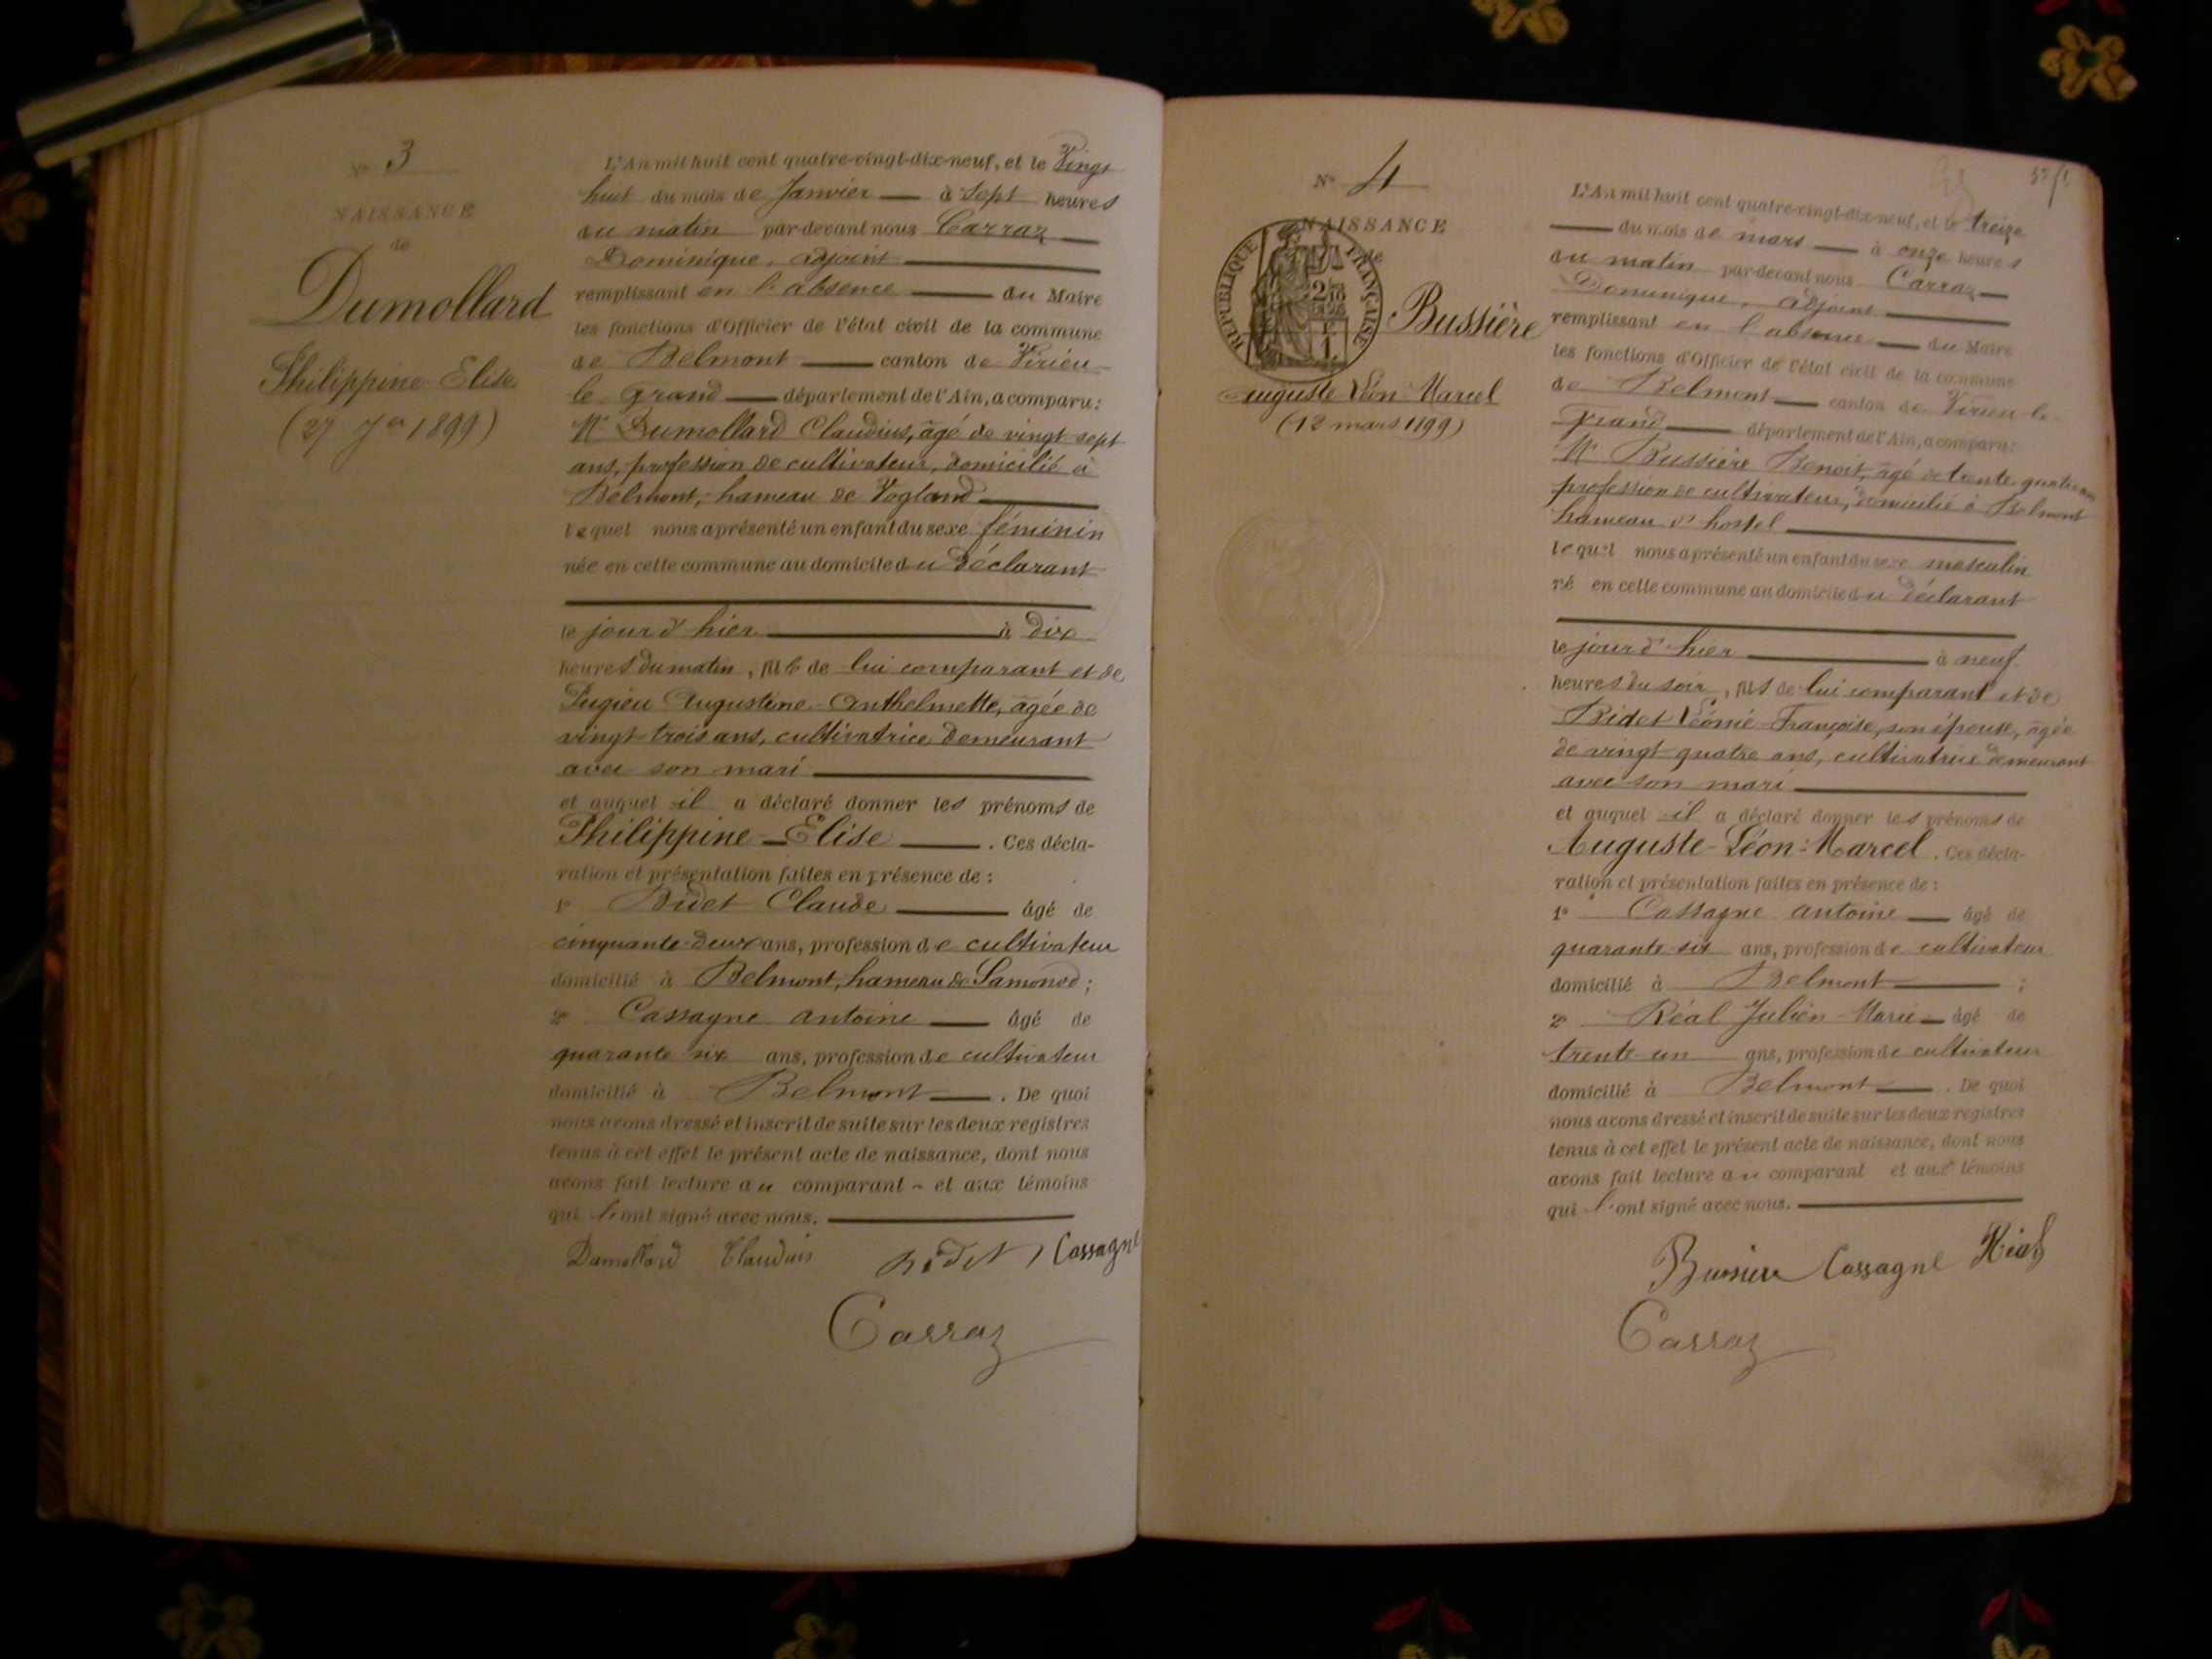 N° 3
NAISSANCE
de
Dumollard
Philippine Elise
(27 Jer 1899)
L'An mil huit cent quatre-vingt-dix-neuf, et le Vingt
huit du mois de Janvier à Sept heures
du matin par-devant nous Carraz
Dominique, adjoint
remplissant en l'absence du Maire
les fonctions d'Officier de l'état civil de la commune
de Belmont canton de Virieu
le grand département de l'Ain, a comparu:
Mr Dumollard Claudius, âgé de vingt sept
ans, profession de cultivateur, domicilié à
Belmont, hameau de Vogland
lequel nous a présenté un enfant du sexe féminin
née en cette commune au domicile du déclarant
le jour d'hier à dix
heures du matin, fille de lui comparant et de
Pugieu Augustine Anthelmette, âgée de
vingt trois ans, cultivatrice demeurant
avec son mari
et auquel il a déclaré donner les prénoms de
Philippine-Elise. Ces décla-
ration et présentation faites en présence de:
1° Bidet Claude âgé de
cinquante deux ans, profession de cultivateur
domicilié à Belmont, hameau de Samonod;
2° Cassagne antoine âgé de
quarante six ans, profession de cultivateur
domicilié à Belmont. De quoi
nous avons dressé et inscrit de suite sur les deux registres
tenus à cet effet le présent acte de naissance, dont nous
avons fait lecture au comparant et aux témoins
qui l'ont signé avec nous.
Dumollard Claudius Bidet Cassagne
Carraz
N° 4
NAISSANCE
de
REPUBLIQUE FRANÇAISE
Bussière
Auguste Léon Marcel
(12 mars 1899)
L'An mil huit cent quatre-vingt-dix-neuf, et le treize
du mois de mars à onze heures
du matin par-devant nous Carraz
Dominique, adjoint
remplissant en l'absence du Maire
les fonctions d'Officier de l'état civil de la commune
de Belmont canton de Virieu-le-
grand département de l'Ain, a comparu:
Mr Bussière Benoit, âgé de trente quatre ans
profession de cultivateur, domicilié à Belmont
hameau d'hostel
lequel nous a présenté un enfant du sexe masculin
né en cette commune au domicile du déclarant
le jour d'hier à neuf
heures du soir, fils de lui comparant et de
Bidet Léonie Françoise, son épouse, âgée
de vingt quatre ans, cultivatrice demeurant
avec son mari
et auquel il a déclaré donner les prénoms de
Auguste-Léon-Marcel. Ces décla-
ration et présentation faites en présence de:
1° Cassagne antoine âgé de
quarante six ans, profession de cultivateur
domicilié à Belmont;
2° Réal Julien Marie âgé de
trente un ans, profession de cultivateur
domicilié à Belmont. De quoi
nous avons dressé et inscrit de suite sur les deux registres
tenus à cet effet le présent acte de naissance, dont nous
avons fait lecture au comparant et aux témoins
qui l'ont signé avec nous.
Bussiere Cassagne Réal
Carraz